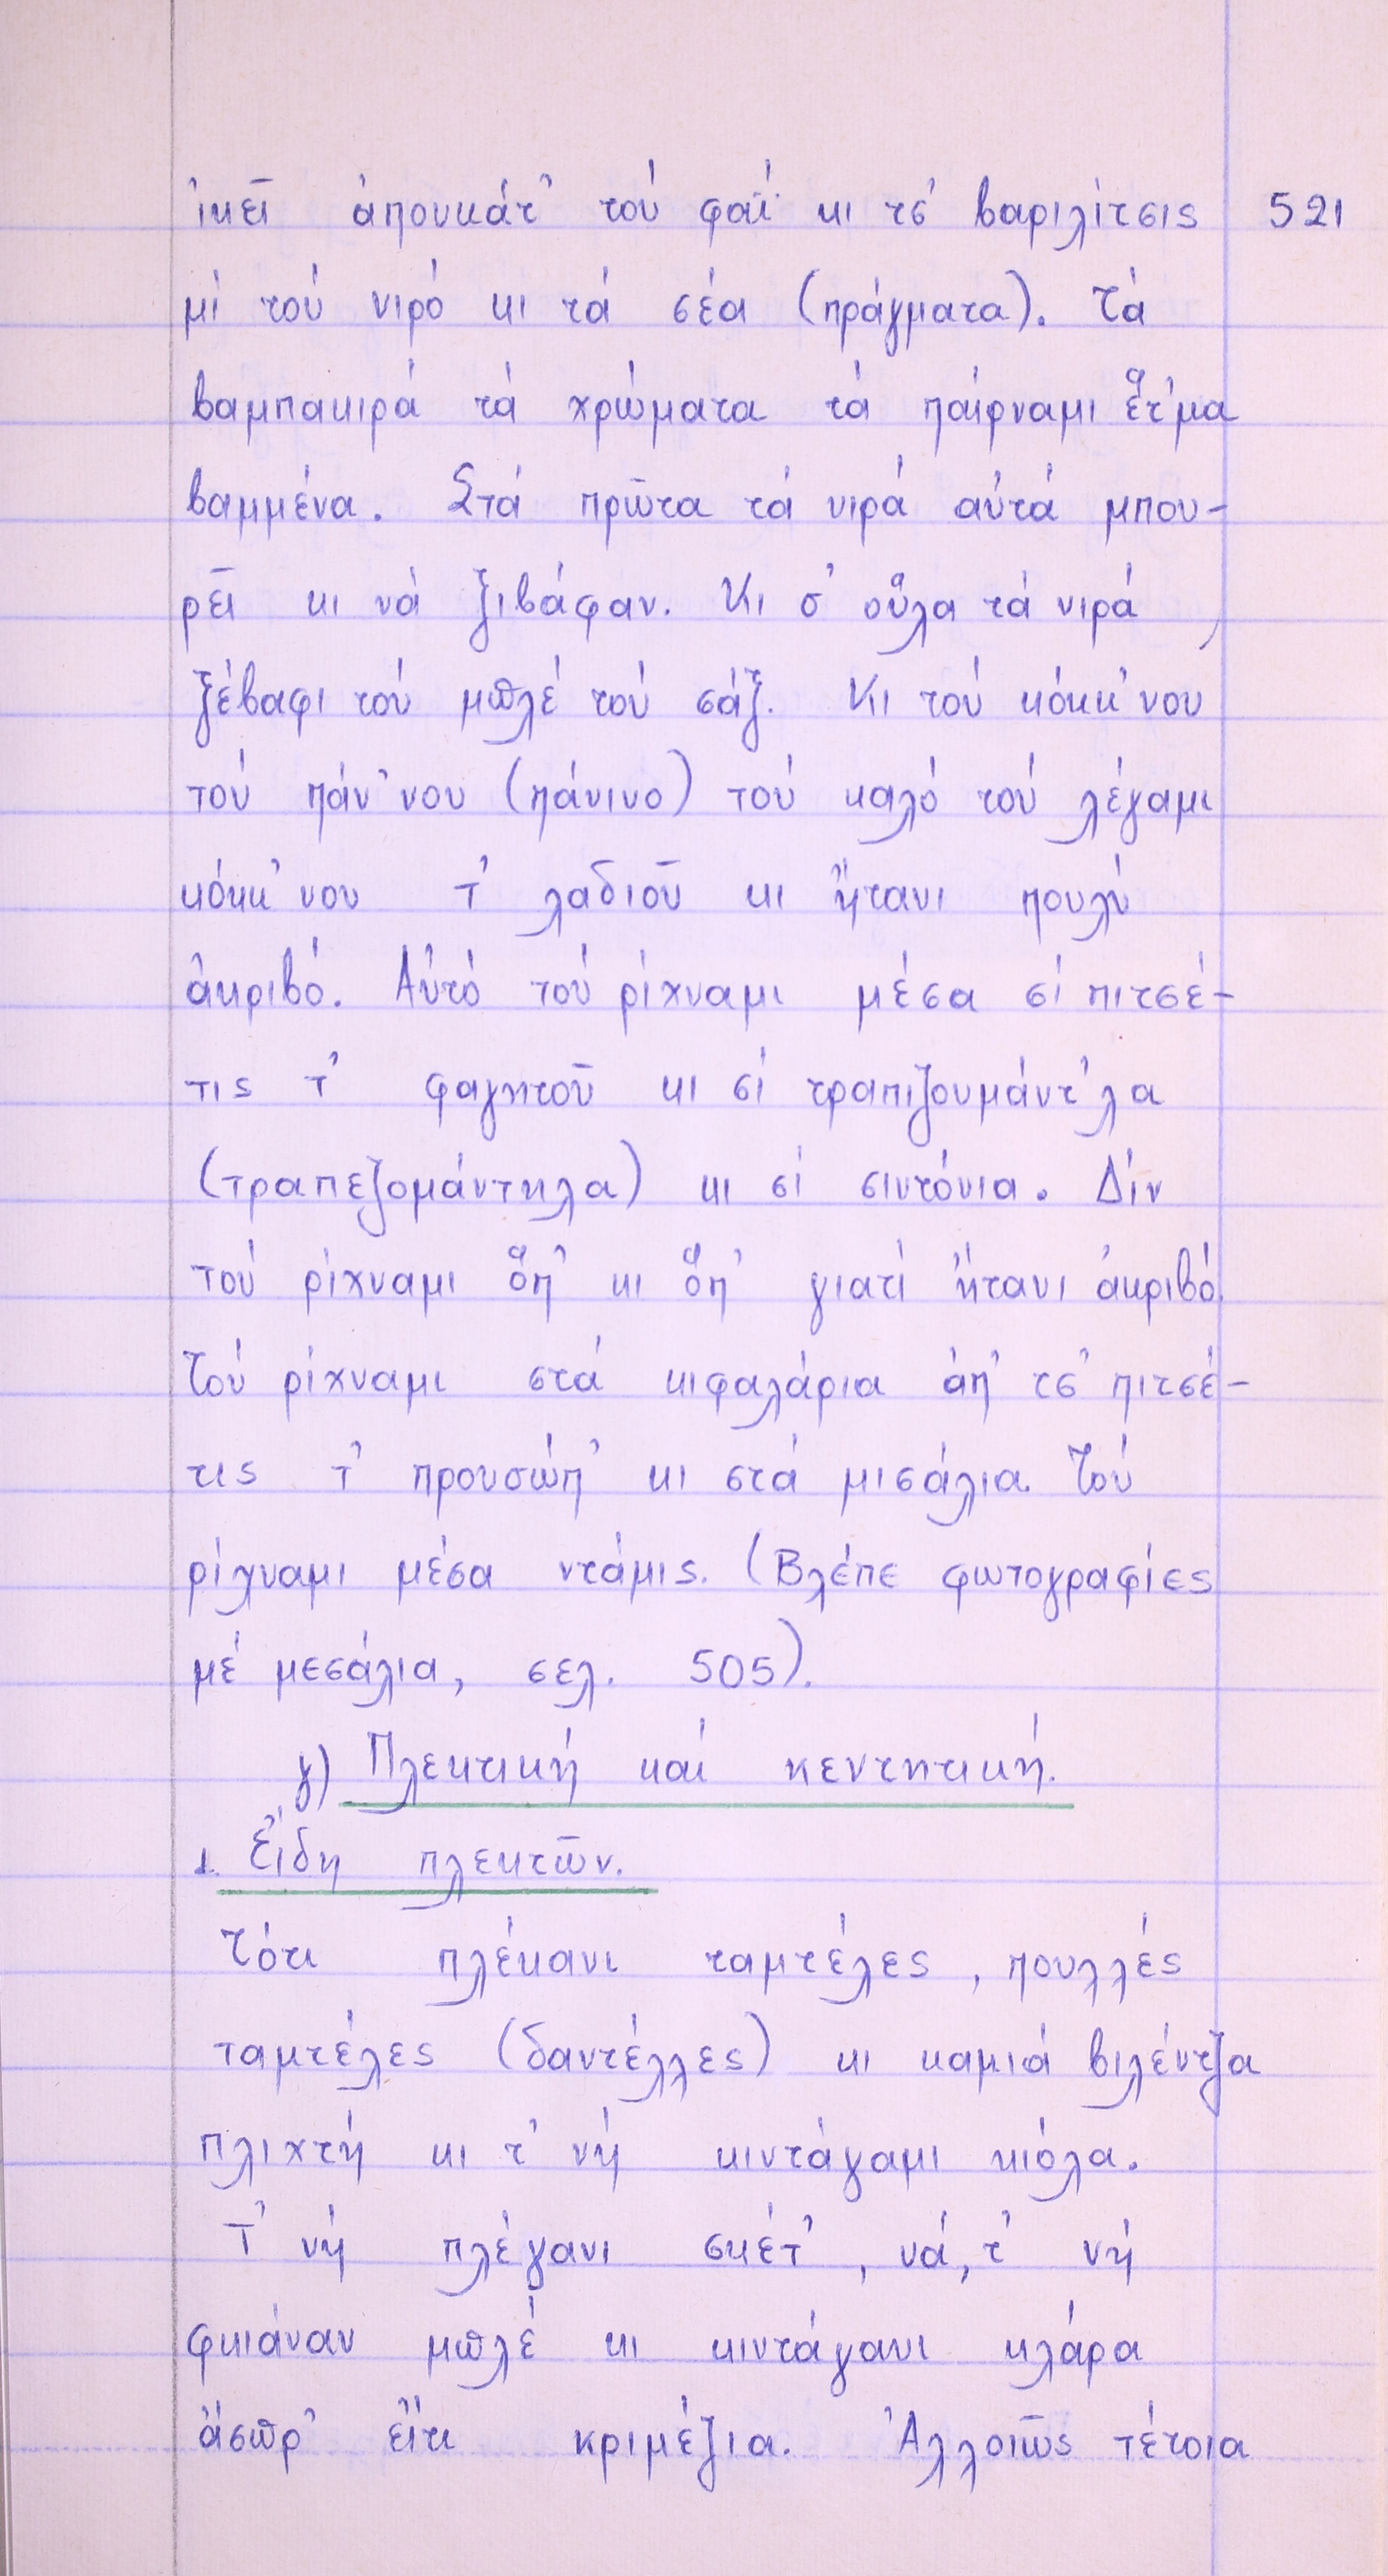 ἰκεῖ ἀπουκάτ' τού φαΐ κι τσ' βαριλίτσις 521
μί τού νιρό κι τά σέα (πράγματα). Τά
βαμπακιρά τά χρώματα τά παίρναμι ἕτ'μα
βαμμένα. Στά πρῶτα τά νιρά αὐτά μπου-
ρεῖ κι νά ξιβάφαν. Κι σ' οὗλα τά νιρά
ξέβαφι τού μπλέ τού σάξ. Κι τού κόκκ'νου
τού πάν'νου (πάνινο) τού καλό τού λέγαμι
κόκκ'νου τ' λαδιοῦ κι ἤτανι πουλύ
ἀκριβό. Αὐτό τού ρίχναμι μέσα σί πιτσέ-
τις τ' φαγητοῦ κι σί τραπιζουμάντ'λα
(τραπεζομάντηλα) κι σί σιντόνια. Δίν
τού ρίχναμι ὅπ' κι ὅπ' γιατί ἤτανι ἀκριβό.
Τού ρίχναμι στά κιφαλάρια ἀπ' τσ' πιτσέ-
τις τ' προυσώπ' κι στά μισάλια. Τού
ρίχναμι μέσα ντάμις. (Βλέπε φωτογραφίες
μέ μεσάλια, σελ. 505).
γ) Πλεκτική καί κεντητική.
1. Εἴδη πλεκτῶν.
Τότι πλέκανι ταμτέλες, πουλλές
ταμτέλες (δαντέλλες) κι καμιά βιλέντζα
πλιχτή κι τ' νή κιντάγαμι κιόλα.
Τ' νή πλέγανι σκέτ', νά, τ' νή
φκιάναν μπλέ κι κιντάγανι κλάρα
ἄσπρ' εἴτι κριμέζια. Ἀλλοιῶς τέτοια